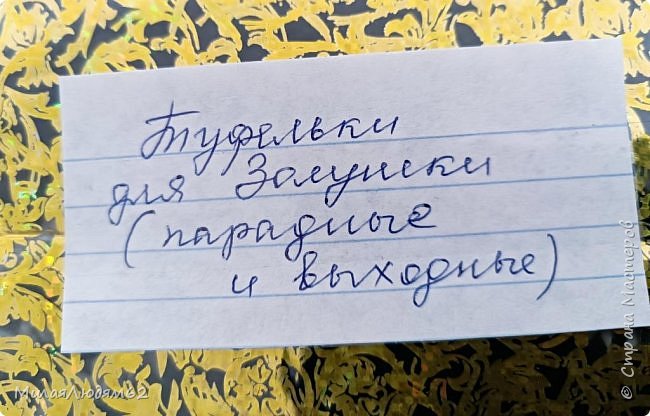 Туфельки
для Золушки
(парадные
и выходные)
МилаяЛюдям62
© Страна Мастеров